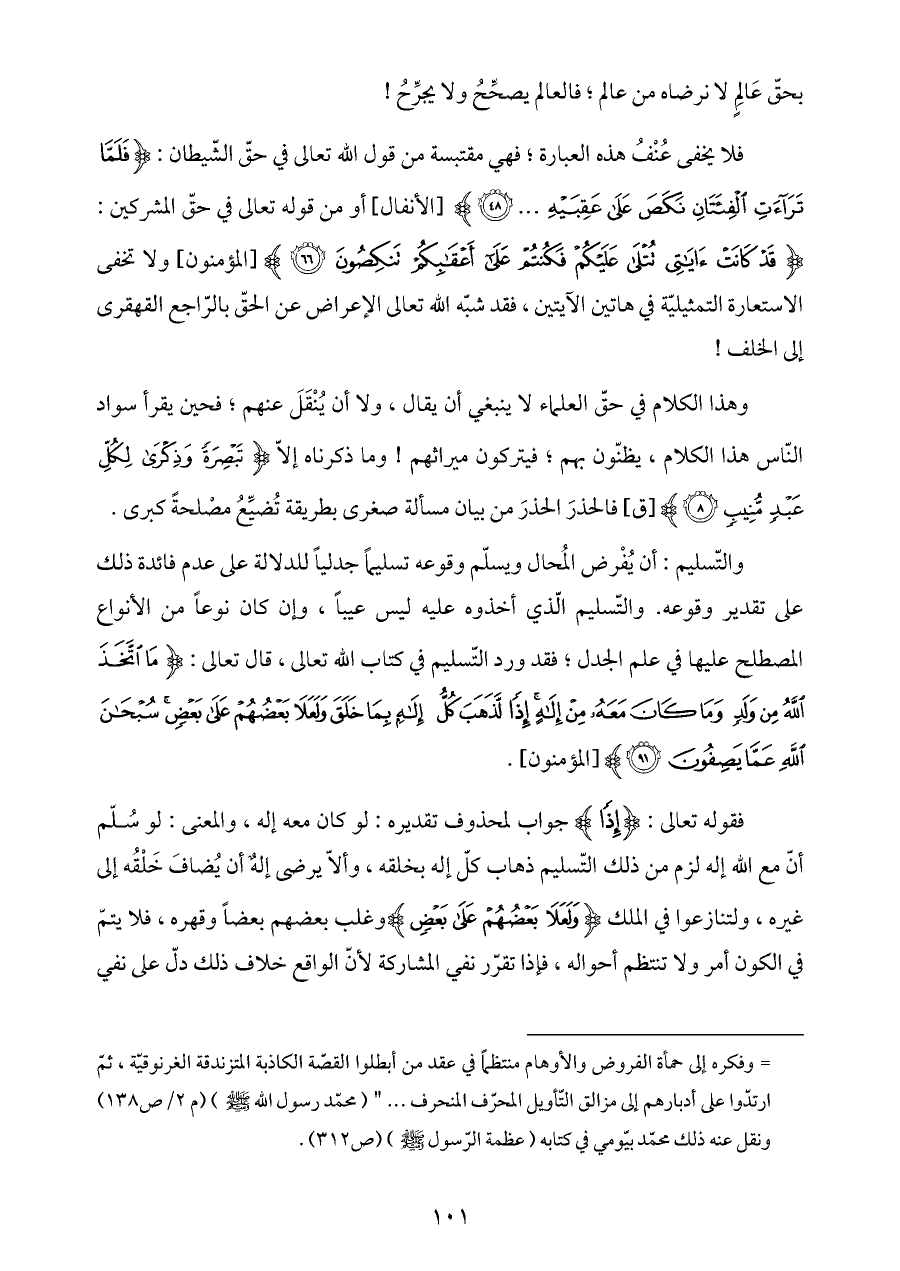 بحقّ عَالمٍ لا نرضاه من عالم ؛ فالعالم يصحِّحُ ولا يجرِّحُ !
فلا يخفى عُنْفُ هذه العبارة ؛ فهي مقتبسة من قول الله تعالى في حقّ الشّيطان : ﴿ فَلَمَّا
تَرَآءَتِ ٱلْفِئَتَانِ نَكَصَ عَلَىٰ عَقِبَيْهِ ... ٤٨ ﴾ [الأنفال] أو من قوله تعالى في حقّ المشركين :
﴿ قَدْ كَانَتْ ءَايَٰتِى تُتْلَىٰ عَلَيْكُمْ فَكُنتُمْ عَلَىٰٓ أَعْقَٰبِكُمْ تَنكِصُونَ ٦٦ ﴾ [المؤمنون] ولا تخفى
الاستعارة التمثيليّة في هاتين الآيتين ، فقد شبّه الله تعالى الإعراض عن الحقّ بالرّاجع القهقرى
إلى الخلف !
وهذا الكلام في حقّ العلماء لا ينبغي أن يقال ، ولا أن يُنْقَلَ عنهم ؛ فحين يقرأ سواد
النّاس هذا الكلام ، يظنّون بهم ؛ فيتركون ميراثهم ! وما ذكرناه إلاّ ﴿ تَبْصِرَةً وَذِكْرَىٰ لِكُلِّ
عَبْدٍ مُّنِيبٍ ٨ ﴾ [ق] فالحذرَ الحذرَ من بيان مسألة صغرى بطريقة تُضيِّعُ مصْلحةً كبرى .
والتّسليم : أن يُفْرض المُحال ويسلّم وقوعه تسليماً جدلياً للدلالة على عدم فائدة ذلك
على تقدير وقوعه. والتّسليم الّذي أخذوه عليه ليس عيباً ، وإن كان نوعاً من الأنواع
المصطلح عليها في علم الجدل ؛ فقد ورد التّسليم في كتاب الله تعالى ، قال تعالى : ﴿ مَا ٱتَّخَذَ
ٱللَّهُ مِن وَلَدٍ وَمَا كَانَ مَعَهُۥ مِنْ إِلَٰهٍ ۚ إِذًا لَّذَهَبَ كُلُّ إِلَٰهٍۭ بِمَا خَلَقَ وَلَعَلَا بَعْضُهُمْ عَلَىٰ بَعْضٍ ۚ سُبْحَٰنَ
ٱللَّهِ عَمَّا يَصِفُونَ ٩١ ﴾ [المؤمنون] .
فقوله تعالى : ﴿ إِذًا ﴾ جواب لمحذوف تقديره : لو كان معه إله ، والمعنى : لو سُلّم
أنّ مع الله إله لزم من ذلك التّسليم ذهاب كلّ إله بخلقه ، وألاّ يرضى إلهٌ أن يُضافَ خَلْقُه إلى
غيره ، ولتنازعوا في الملك ﴿ وَلَعَلَا بَعْضُهُمْ عَلَىٰ بَعْضٍ ﴾ وغلب بعضهم بعضاً وقهره ، فلا يتمّ
في الكون أمر ولا تنتظم أحواله ، فإذا تقرّر نفي المشاركة لأنّ الواقع خلاف ذلك دلّ على نفي
= وفكره إلى حمأة الفروض والأوهام منتظماً في عقد من أبطلوا القصّة الكاذبة المتزندقة الغرنوقيّة ، ثمّ
ارتدّوا على أدبارهم إلى مزالق التّأويل المحرّف المنحرف ... " ( محمّد رسول الله ﷺ ) (م ٢/ ص١٣٨)
ونقل عنه ذلك محمّد بيّومي في كتابه ( عظمة الرّسول ﷺ ) (ص٣١٢) .
١٠١